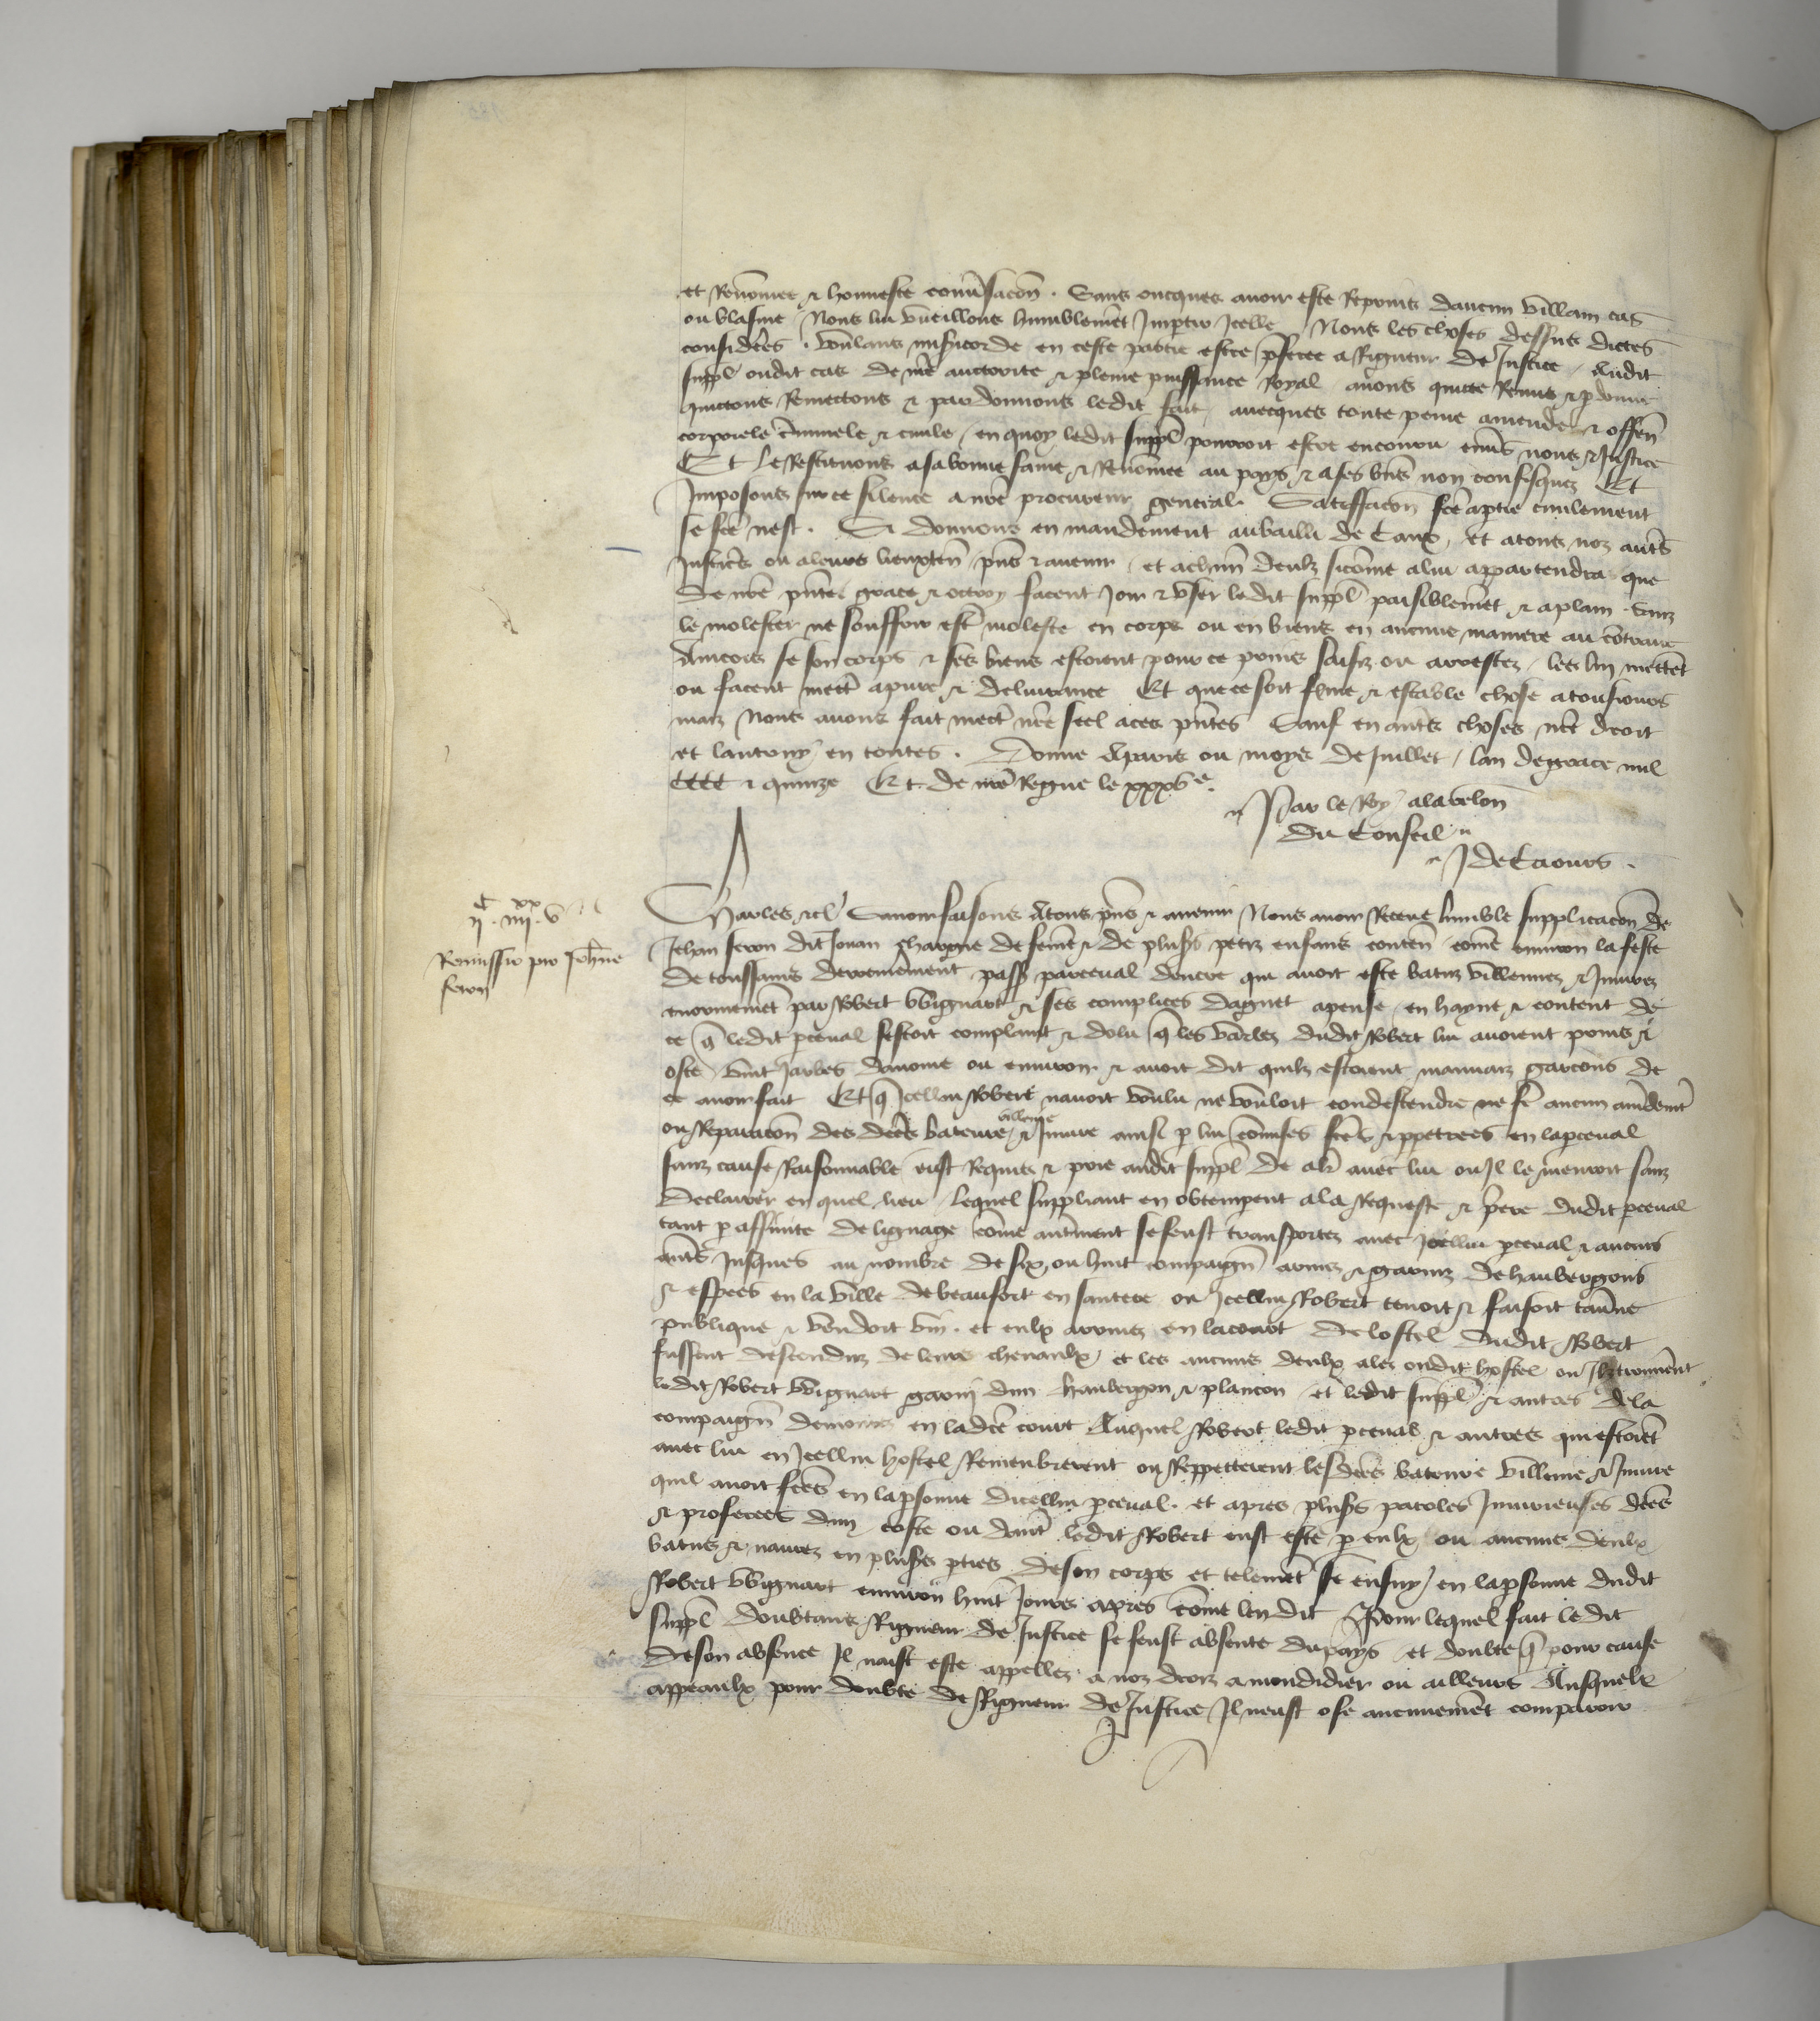 et Renommee & honneste conversacon. Sans oncques avoir este Reprins daucun villain cas
ou blasme Nous lui vueillons humblemēt Impartir Icelle Nous les choses dessus dictes
considerēs. voulans misericorde en ceste partie estre preferee a Rigueur de Justice Audit
suppl̄ oudit cas de nr̄e auctorite & pleine puissance Royal avons quicte Remis & pdonne
quictons Remectons & pardonnons ledit fait avecques toute peine amende & offen̄
corporele cr̄iminele & civile en quoy ledit suppl̄ pourroit estre encouru envs̄ nous & Justice
Et le Restituons a sa bonne fame & Renomee au pays & a ses biens non confisquez Et
Imposons sur ce silence a nr̄e procureur general. Satisfacon fcē a ptie civilement
se fcē nest. Si donnons en mandement au bailli de Caux, et a tous noz autres
Justiciers ou a leurs lieuxten̄ pn̄s & avenir et a chūn deulx sicōme a lui appartendra que
de nr̄e pn̄te grace & octroy facent Joir & user ledit suppl̄ paisiblemēt & aplain sanz
le molester ne souffrir estr̄ moleste en corps ou en biens en aucune maniere au cōtraire
Aincois se son corps & ses biens estoient pour ce prins saisiz ou arrestez les lui mettēt
ou facent mectr̄ a pure & delivrance Et que ce soit ferme & estable chose a tousiours
maiz Nous avons fait mectr̄ nr̄e seel a ces pn̄tes Sauf en autrēs choses nr̄e droit
et lautruy en toutes. Donne A paris ou moys de Juillet lan de grace mil
CCCC & quinze Et de nr̄e Regne le xxxve.
Par le Roy a la relon̄
du Conseil
J de Crouis.
C xx
ij. iiij. v
Remissio pro John̄e
feron
Charles &c̄ Savoir faisons A tous pn̄s & avenir Nous avoir Receue lumble supplicacon de
Jehan feron dit Jouan charge de femē & de plusrs̄ petiz enfans conten̄ cōme environ la feste
de toussains derrenierement passē parceval doncre qui avoit este batuz villennez & Iniuriez
enormemēt par Robert Wignart & ses complices daguet apense en hayne & content de
ce q̄ ledit pceval sestoit complaint & dolu q̄ les varlez dudit Robert lui avoient prins &
oste vint Jarbes davoine ou environ & avoit dit quilz estoient mauvaiz garcons de
ce avoir fait Et q̄ Icellui Robert navoit voulu ne vouloit condescendre ne fē aucun amēdemt̄
ou Reparacon des dictes bateure villenie & Iniure ainsi p lui commises fctēs & ppetrees en la pceval
sanz cause Raisonnable eust Requis & prie audit suppl̄ de alr̄ avec lui ou Il le menroit sanz
declairer en quel lieu lequel suppliant en obtempent a la Requeste & priere dudit pceval
tant p affinite de lignage cōme autrement se feust transportez avec Icellui pceval & aucuns
autrēs Jusques au nombre de six ou huit compaign̄ armez & garniz de haubergons
& espees en la ville de beaufort en santere ou Icellui Robert tenoit & faisoit taūne
publique & vendoit vin. et eulx arrivez en la court de lostel dudit Robert
fussent descenduz de leurs chevaulx et les aucuns deulx alez oudit hostel ou Ilz trouverēt
ledit Robert Wignart garny dun haubergon & plancon et ledit suppl̄ & autres de la
compaign̄ demourez en ladcē court Auquel Robert ledit pceval & autres qui estoiēt
avec lui en Icellui hostel Remenbrerent ou Reppetterent lesdcēs bateure villenie & Iniure
quil avoit fcēs en la psonne dicellui pceval. et apres plusrs̄ paroles Iniurieuses dcēs
& proferees dun coste ou dautr̄ ledit Robert eust este p eulx ou aucuns deulx
batus & navrez en plusrs̄ pties de son corps et telemēt se ensuy en la psonne dudit
Robert Wignart environ huit Jours apres cōme len dit Pour lequel fait le dit
suppl̄ doubtans Rigueur de Justice se feust absente du pays et doubte q̄ pour cause
de son absence Il naist este appellez a noz droiz a mondidier ou ailleurs Ausquelz
appeaulx pour doubte de Rigueur de Justice Il neust ose aucunemēt comparoir